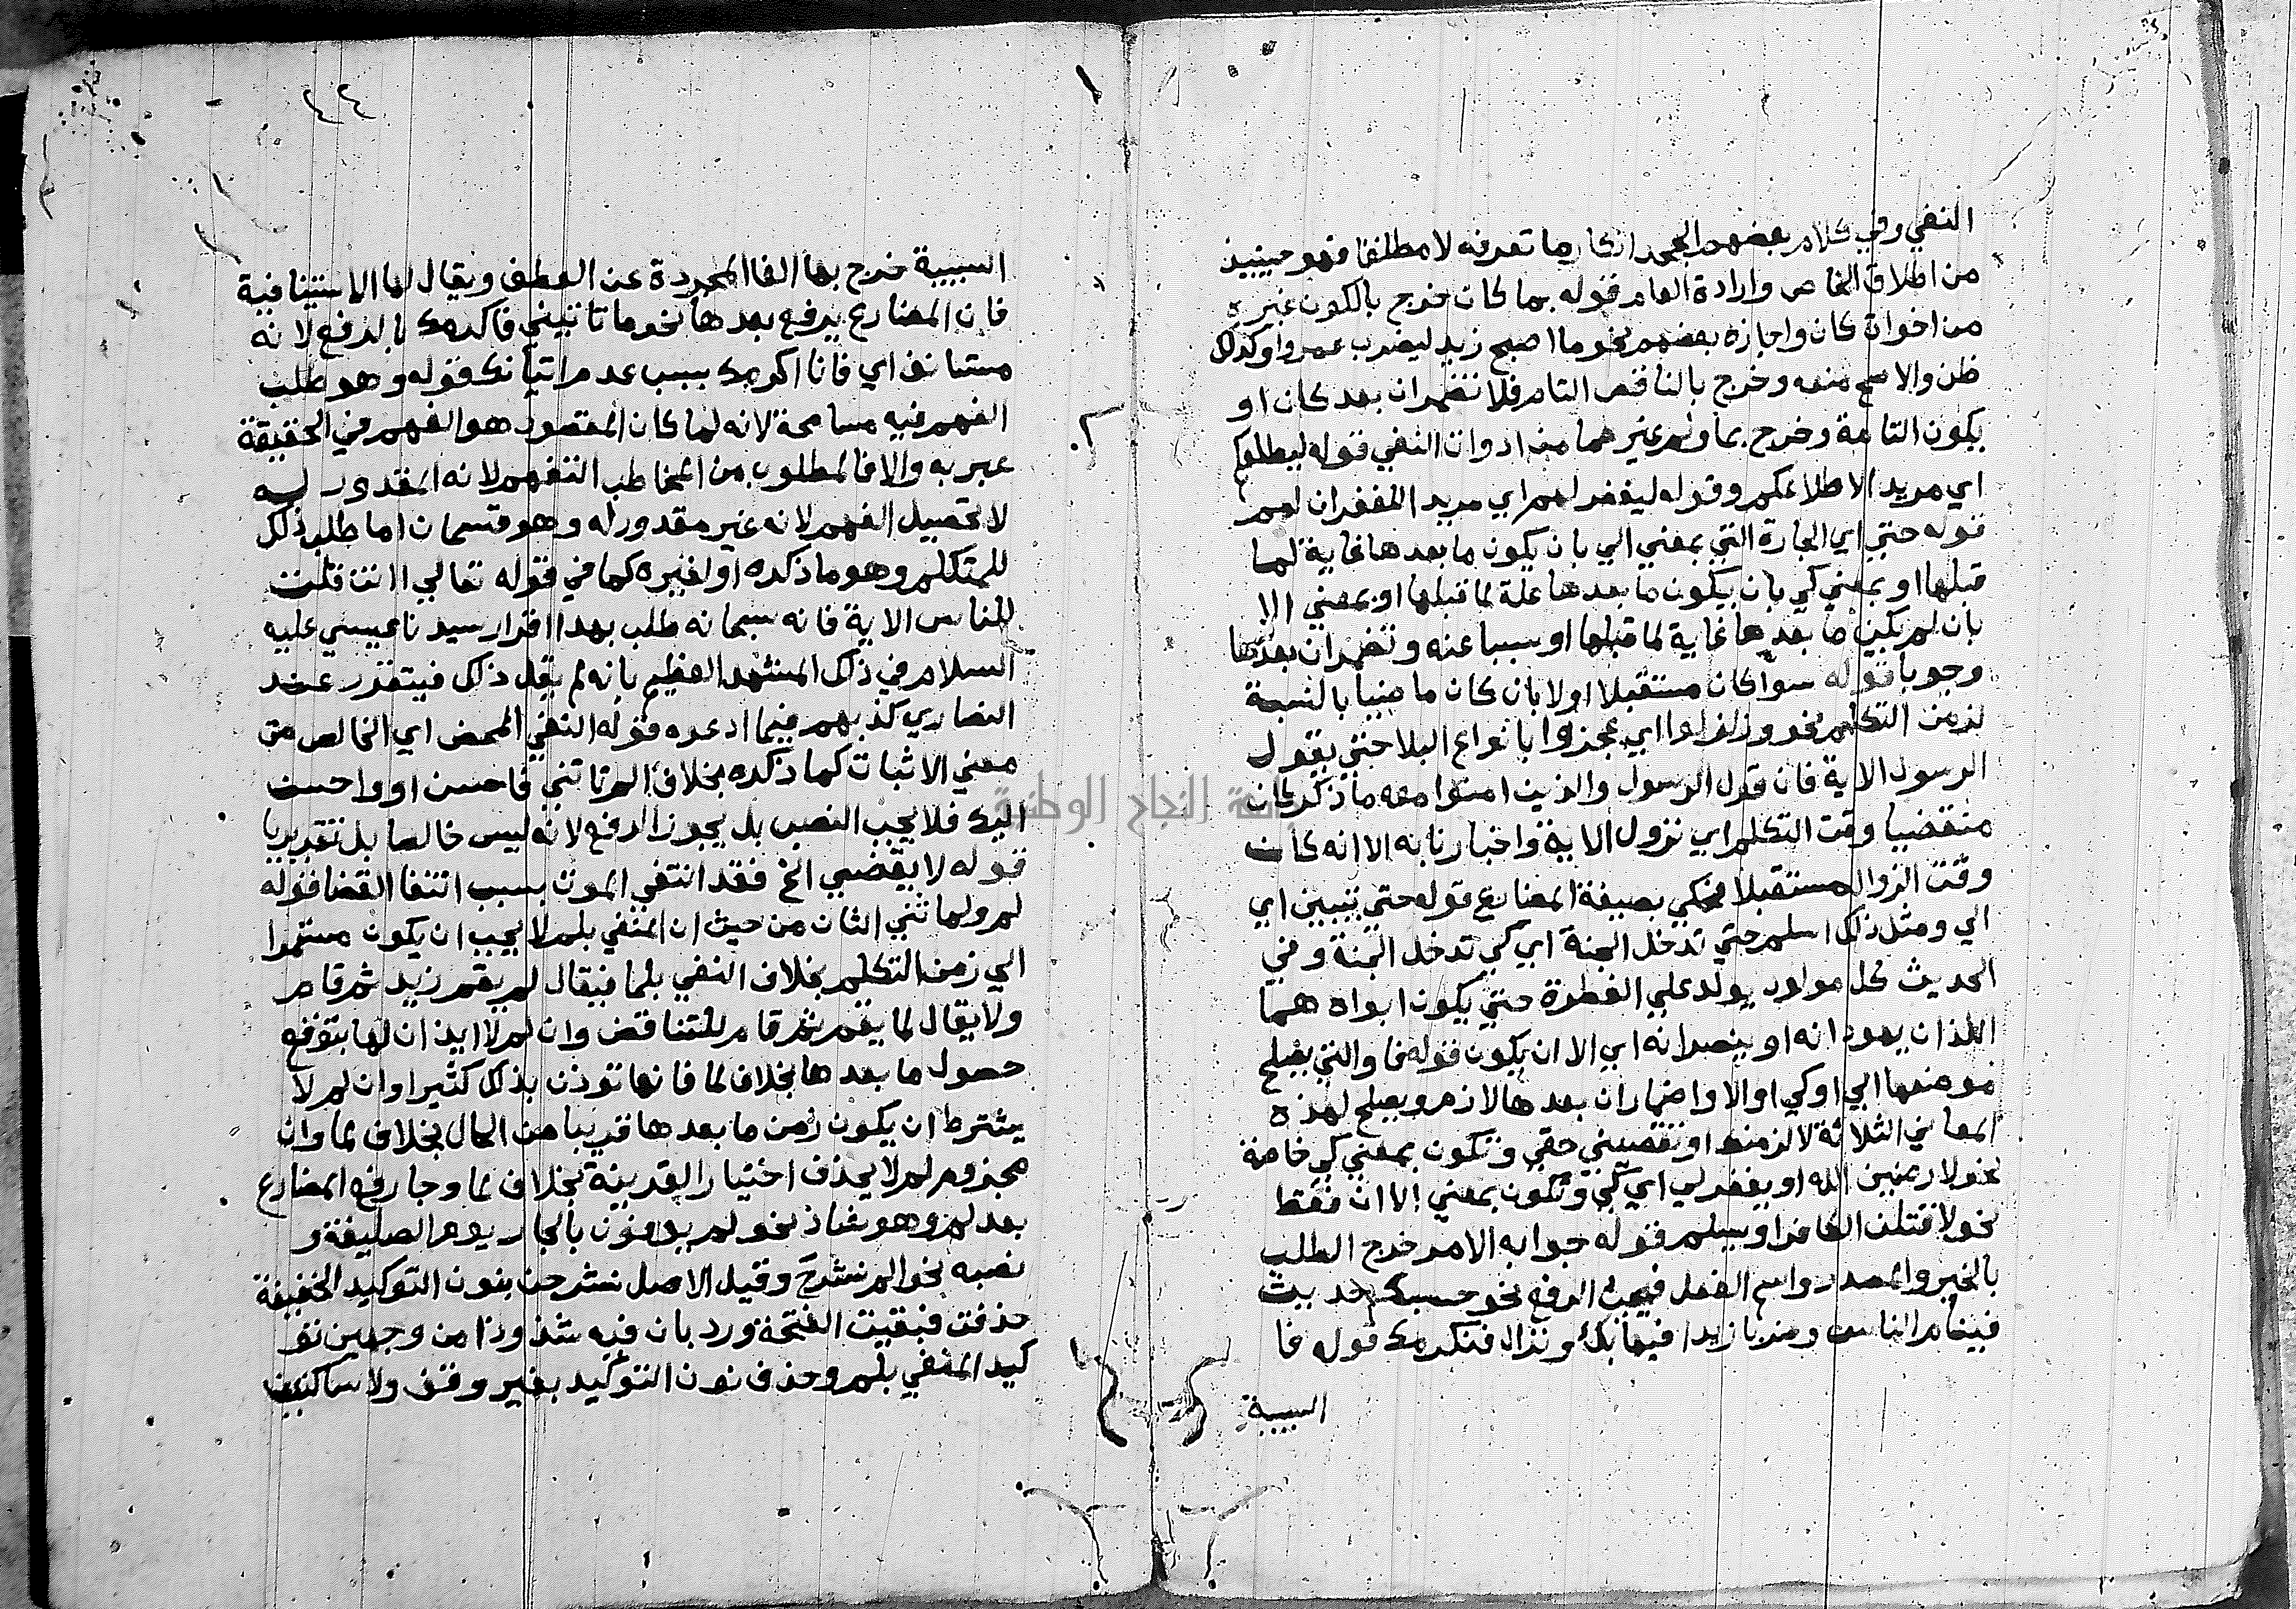 النفي وفي كلام بعضهم الجحد انكار ما تعرفه لا مطلقا فهو حينيذ
من اطلاق الخاص وارادة العام قوله بما كان خرج بالكون غيره
من اخوات كان واجازه بعضهم نحو ما اصبح زيد ليضرب عمروا وكذلك
ظن والاصح منعه وخرج بالناقص التام فلا تضمر ان بعد كان او
يكون التامة وخرج بما ولم غيرهما من ادوات النفي قوله ليطلعكم
اي مريد الاطلاعكم وقوله ليغفر لهم اي مريد الغفران لهم
قوله حتي اي الجارة التي بمعني الي بان يكون ما بعدها غاية لما
قبلها او بمعني كي بان يكون ما بعدها علة لما قبلها او بمعني الا
بان لم يكن ما بعدها غاية لما قبلها او سببا عنه وتضمر ان بعدها
وجوبا قوله سوا كان مستقبلا اولا بان كان ماضيا بالنسبة
لزمن التكلم نحو وزلزلوا اي عجزوا بانواع البلا حتي يقول
الرسول الاية فان قول الرسول والذين امنوا معه ما ذكر كان
منقضيا وقت التكلم اي نزول الاية واخبارنا به الا انه كان
وقت الزوال مستقبلا فحكي بصيغة المضارع قوله حتي تتبين اي
الي ومثل ذلك اسلم حتي تدخل الجنة اي كي تدخل الجنة وفي
الحديث كل مولود يولد علي الفطرة حتي يكون ابواه هما
اللذان يهودانه او ينصرانه اي الا ان يكون قوله فا والتي يصلح
موضعها الي او كي او الا واضمار ان بعدها لازم ويصلح لهذه
المعاني الثلاثة لالزمنك او تقضيني حقي وتكون بمعني كي خاصة
نحو لارضين الله او يغفر لي اي كي وتكون بمعني الا ان فقط
نحو لاقتلن الكافر او يسلم قوله جوابه الامر خرج الطلب
بالخبر والمصدر واسم الفعل فيجب الرفع نحو حسبك حديث
فينام الناس وضربا زيدا فيتابك ونزال فنكرمك قوله فا
السببية
٤٢
السببية خرج بها الفا المجردة عن العطف ويقال لها الاستينافية
فان المضارع يرفع بعدها نحو ما تاتيني فاكرمك بالرفع لانه
مستانف اي فانا اكرمك بسبب عدم اتيانك قوله وهو طلب
الفهم فيه مسامحة لانه لما كان المقصود هو الفهم في الحقيقة
عبر به والا فالمطلوب من المخاطب التفهم لانه المقدور له
لا تحصيل الفهم لانه غير مقدور له وهو قسمان اما طلب ذلك
للمتكلم وهو ما ذكره او لغيره كما في قوله تعالي اانت قلت
للناس الاية فانه سبحانه طلب بهذا اقرار سيدنا عيسي عليه
السلام في ذلك المشهد العظيم بانه لم يقل ذلك فيتقرر عند
النصاري كذبهم فيما ادعوه قوله النفي المحض اي الخالص من
معني الاثبات كما ذكره بخلاف الم تاتني فاحسن او واحسن
اليك فلا يجب النصب بل يجوز الرفع لانه ليس خالصا بل تقريريا
قوله لا يقضي الخ فقد انتفي الموت بسبب انتفا القضا قوله
لم ولما ثني الثان من حيث ان المنفي بلم لا يجب ان يكون مستمرا
الي زمن التكلم بخلاف النفي بلما فيقال لم يقم زيد ثم قام
ولا يقال لما يقم ثم قام للتناقض وان لم لا ايذان لها بتوقع
حصول ما بعدها بخلاف لما فانها توذن بذلك كثيرا وان لم لا
يشترط ان يكون زمن ما بعدها قريبا من الحال بخلاف لما وان
مجزوم لم لا يحذف اختيارا لقرينة بخلاف لما وجا رفع المضارع
بعد لم وهو شاذ نحو لم يوفون بالجار يوم الصليفة و
نصبه نحو الم نشرح وقيل الاصل نشرحن بنون التوكيد الخفيفة
حذفت فبقيت الفتحة ورد بان فيه شذوذا من وجهين تو
كيد المنفي بلم وحذف نون التوكيد بغير وقف ولا ساكنين
جامعة النجاح الوطنية